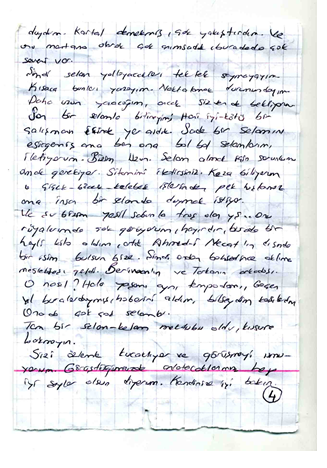 duydum. Kartal demekmiş, çok yakıştırdım. Ve
onu martıma olarak çok anımsadık buradada çok
seveni var.
Şimdi selam yollayacakları tek tek saymayayım.
Kısaca bunları yazayım. Noktalamak durumundayım
Daha uzun yazacağım, ancak sizden de bekliyorum
Son bir selamla bitireyim; Hani iyi-kötü bir
çalışman içinde yer aldık. Sade bir selamını
esirgemiş ama ben ona bol bol selamlarımı
iletiyorum. Bizim Uzun. Selam almak için sorunlu
olmak gerekiyor. Sitemimi iletirsiniz. Keza biliyorum
o çiçek-böcek-kelebek işlerinden pek hoşlanmaz
ama insan bir selamda duymak istiyor.
Ve şu bizim yeşil sabunla traş olan yş... onu
rüyalarımda çok görüyorum, hayırdır, burada bir
hayli kilo aldım, artık Ahmed'i Necat'ın dışında
bir isim bulsun bize. Şimdi ondan bahsedince aklıma
meslektaşı geldi. Berivan'ın ve Torhan arkadaşı.
O nasıl? Hala yaşamı aynı tempodamı, Geçen
yıl buralardaymış, haberini aldım, bilseydim
Ona da çok çok selamlar.
Tam bir selam-kelam mektubu oldu, kusura
bakmayın.
Sizi özlemle kucaklıyor ve görüşmeyi umu-
yorum. Görüştüğümüzde anlatacaklarımız hep
iyi şeyler olsun diyorum. Kendinize iyi bakın.
4